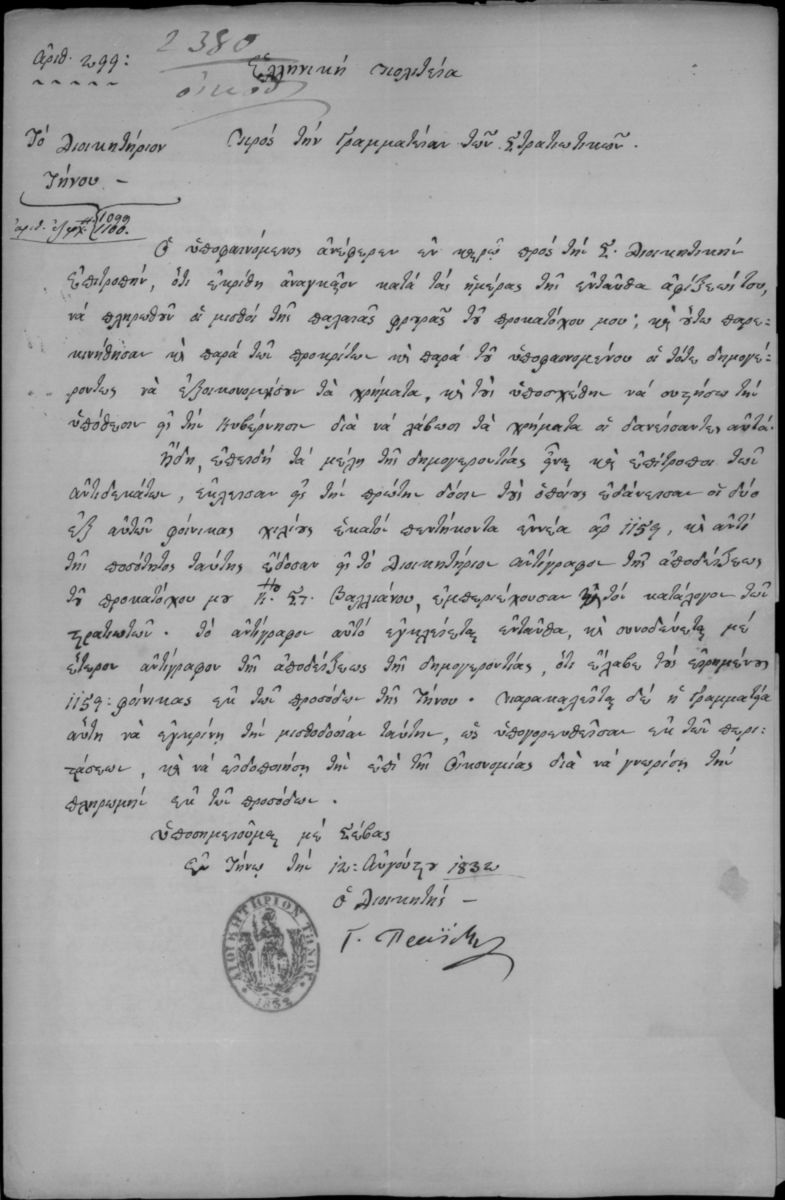 Ἀριθ. 299:
2380
οἰκον
Ἑλληνική πολιτεία
Τό Διοικητήριον
Τήνου –
Πρός τήν Γραμματείαν τῶν Στρατιωτικῶν.
1099
1100.
Ὁ ὑποφαινόμενος ἀνέφερεν ἐν καιρῷ πρός τήν Σ. Διοικητικήν
Ἐπιτροπήν, ὅτι ἐκρίθη ἀναγκαῖον κατά τάς ἡμέρας τῆς ἐνταῦθα ἀφίξεώς του,
νά πληρωθοῦν οἱ μισθοί τῆς παλαιᾶς φρουρᾶς τοῦ προκατόχου μου; καί οὕτω παρε-
κινήθησαν καί παρά τῶν προκρίτων καί παρά τοῦ ὑποφαινομένου οἱ τότε δημογέ-
ροντες νά ἐξοικονομήσουν τά χρήματα, καί τούς ὑποσχέθην νά συστήσω τήν
ὑπόθεσιν εἰς τήν Κυβέρνησιν διά νά λάβωσι τά χρήματα οἱ δανείσαντες αὐτά.
Ἤδη, ἐπειδή τά μέλη τῆς δημογεροντίας καί ἐπίτροποι τῶν
ἀντιδεκάτων, ἔκλεισαν εἰς τήν πρώτην δόσιν τούς ὁποίους ἐδάνεισαν οἱ δύο
ἐξ αὐτῶν φοίνικας χιλίους ἑκατόν πεντήκοντα ἐννέα ἀρ 1159, καί ἀντί
τῆς ποσότητος ταύτης ἔδοσαν εἰς τό Διοικητήριον ἀντίγραφον τῆς ἀποδείξεως
τοῦ προκατόχου μου Κου Στ. Βαλλιάνου, ἐμπεριέχουσαν τόν κατάλογον τῶν
στρατιωτῶν. τό ἀντίγραφον αὐτό ἐγκλείεται ἐνταῦθα, καί συνοδεύεται μέ
ἕτερον ἀντίγραφον τῆς ἀποδείξεως τῆς δημογεροντίας, ὅτι ἔλαβε τούς εἰρημένους
1159: φοίνικας ἐκ τῶν προσόδων τῆς Τήνου. Παρακαλεῖται δέ ἡ Γραμματεία
αὕτη νά ἐγκρίνῃ τήν μισθοδοσίαν ταύτην, ὡς ὑπαγορευθεῖσαν ἐκ τῶν περι-
στάσεων, καί νά εἰδοποιήσῃ τήν ἐπί τῆς Οἰκονομίας διά νά γνωρίσῃ τήν
πληρωμήν ἐκ τῶν προσόδων.
Ὑποσημειοῦμαι μέ σέβας
Ἐν Τήνῳ τήν 12: Αὐγούστου 1832
Ὁ Διοικητής –
ΔΙΟΙΚΗΤΗΡΙΟΝ ΤΗΝΟΥ
1832